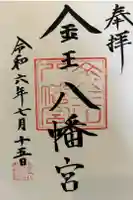 奉拝
金王八幡宮
令和六年七月十五日